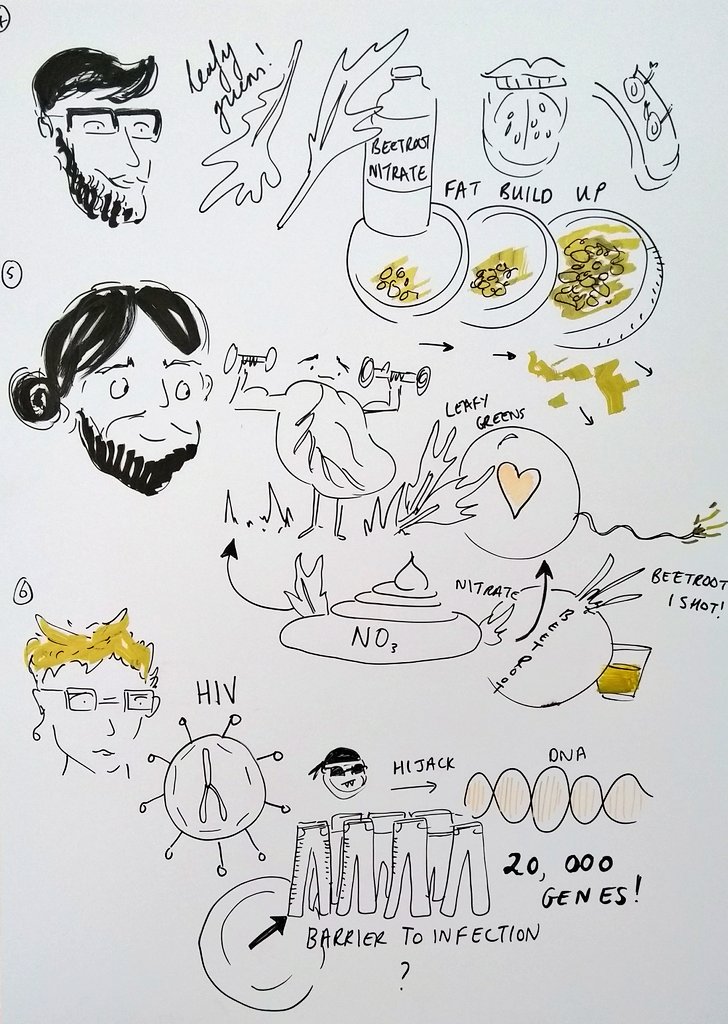 4
leafy
greens!
BEETROOT
NITRATE
FAT BUILD UP
5
LEAFY
GREENS
NITRATE
BEETROOT
1 SHOT!
BEETROOT
NO3
6
HIV
HIJACK
DNA
20,000
GENES!
BARRIER TO INFECTION
?